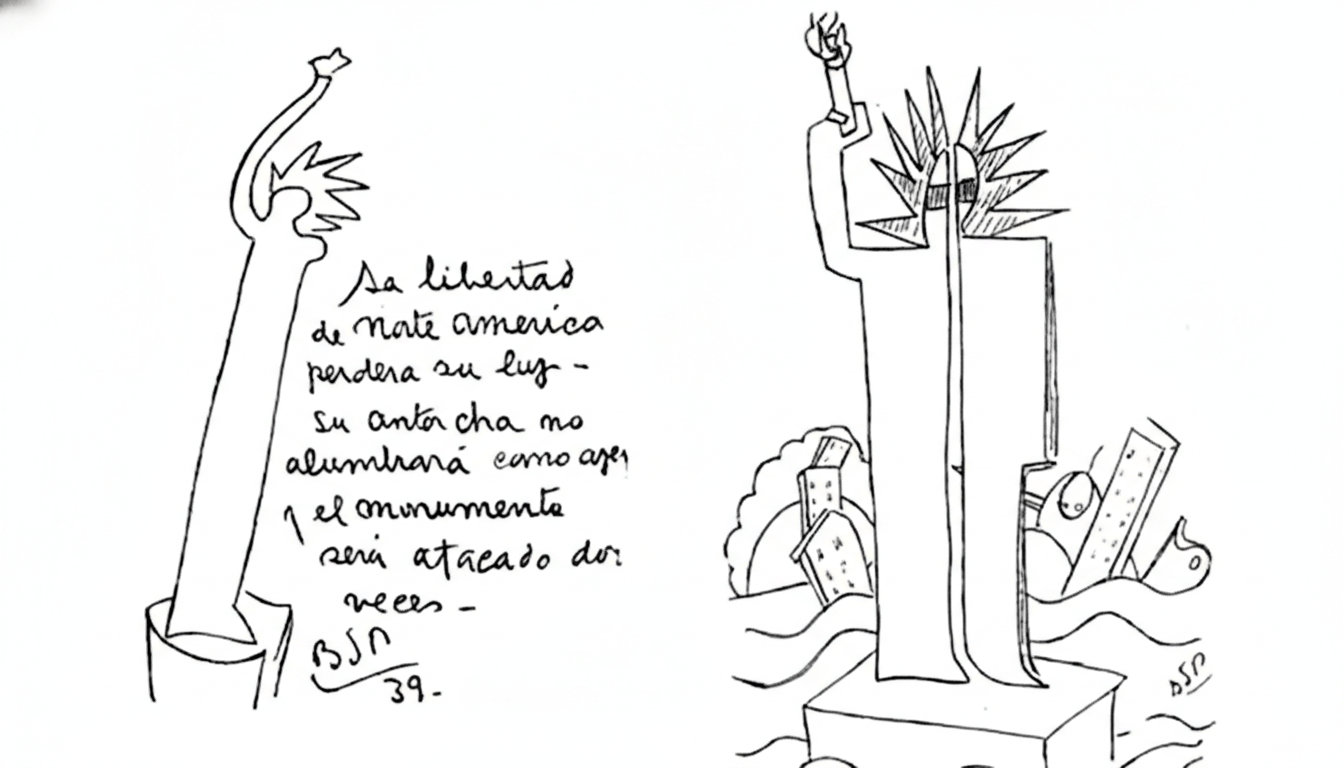 La libertad
de Norte america
perdera su luz -
su antorcha no
alumbrará como ayer
y el monumento
será atacado dos
veces -
BSP
39-
BSP